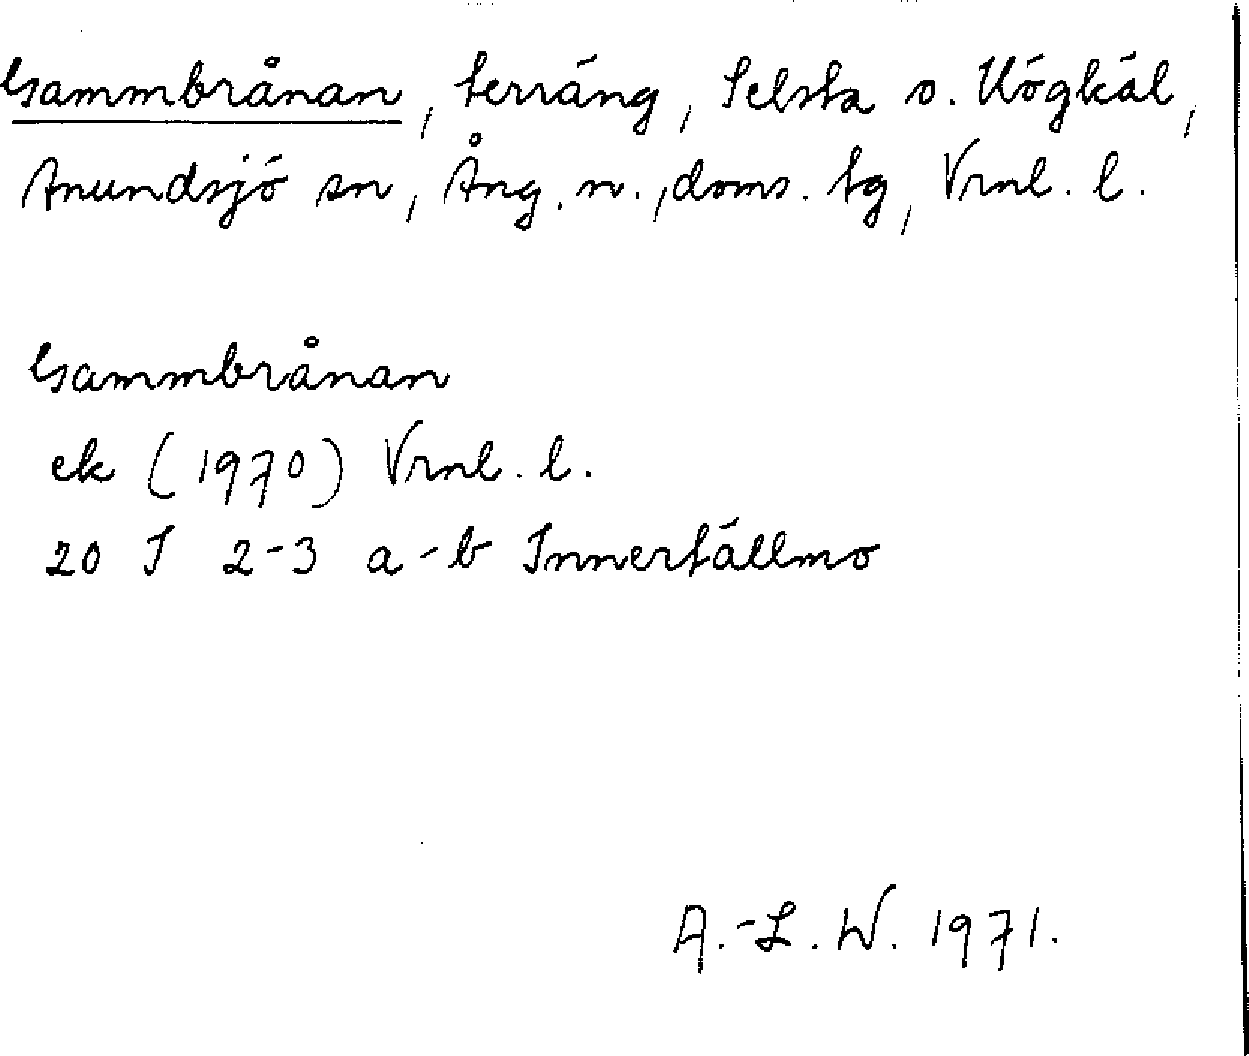 Gammbrånan, terräng, Selsta o. Högkäl,
Anundsjö sn, Ång. n., doms. tg, Vrnl. l.
Gammbrånan
ek (1970) Vrnl. l.
20 I 2-3 a-b Innertällmo
A.-L. W. 1971.